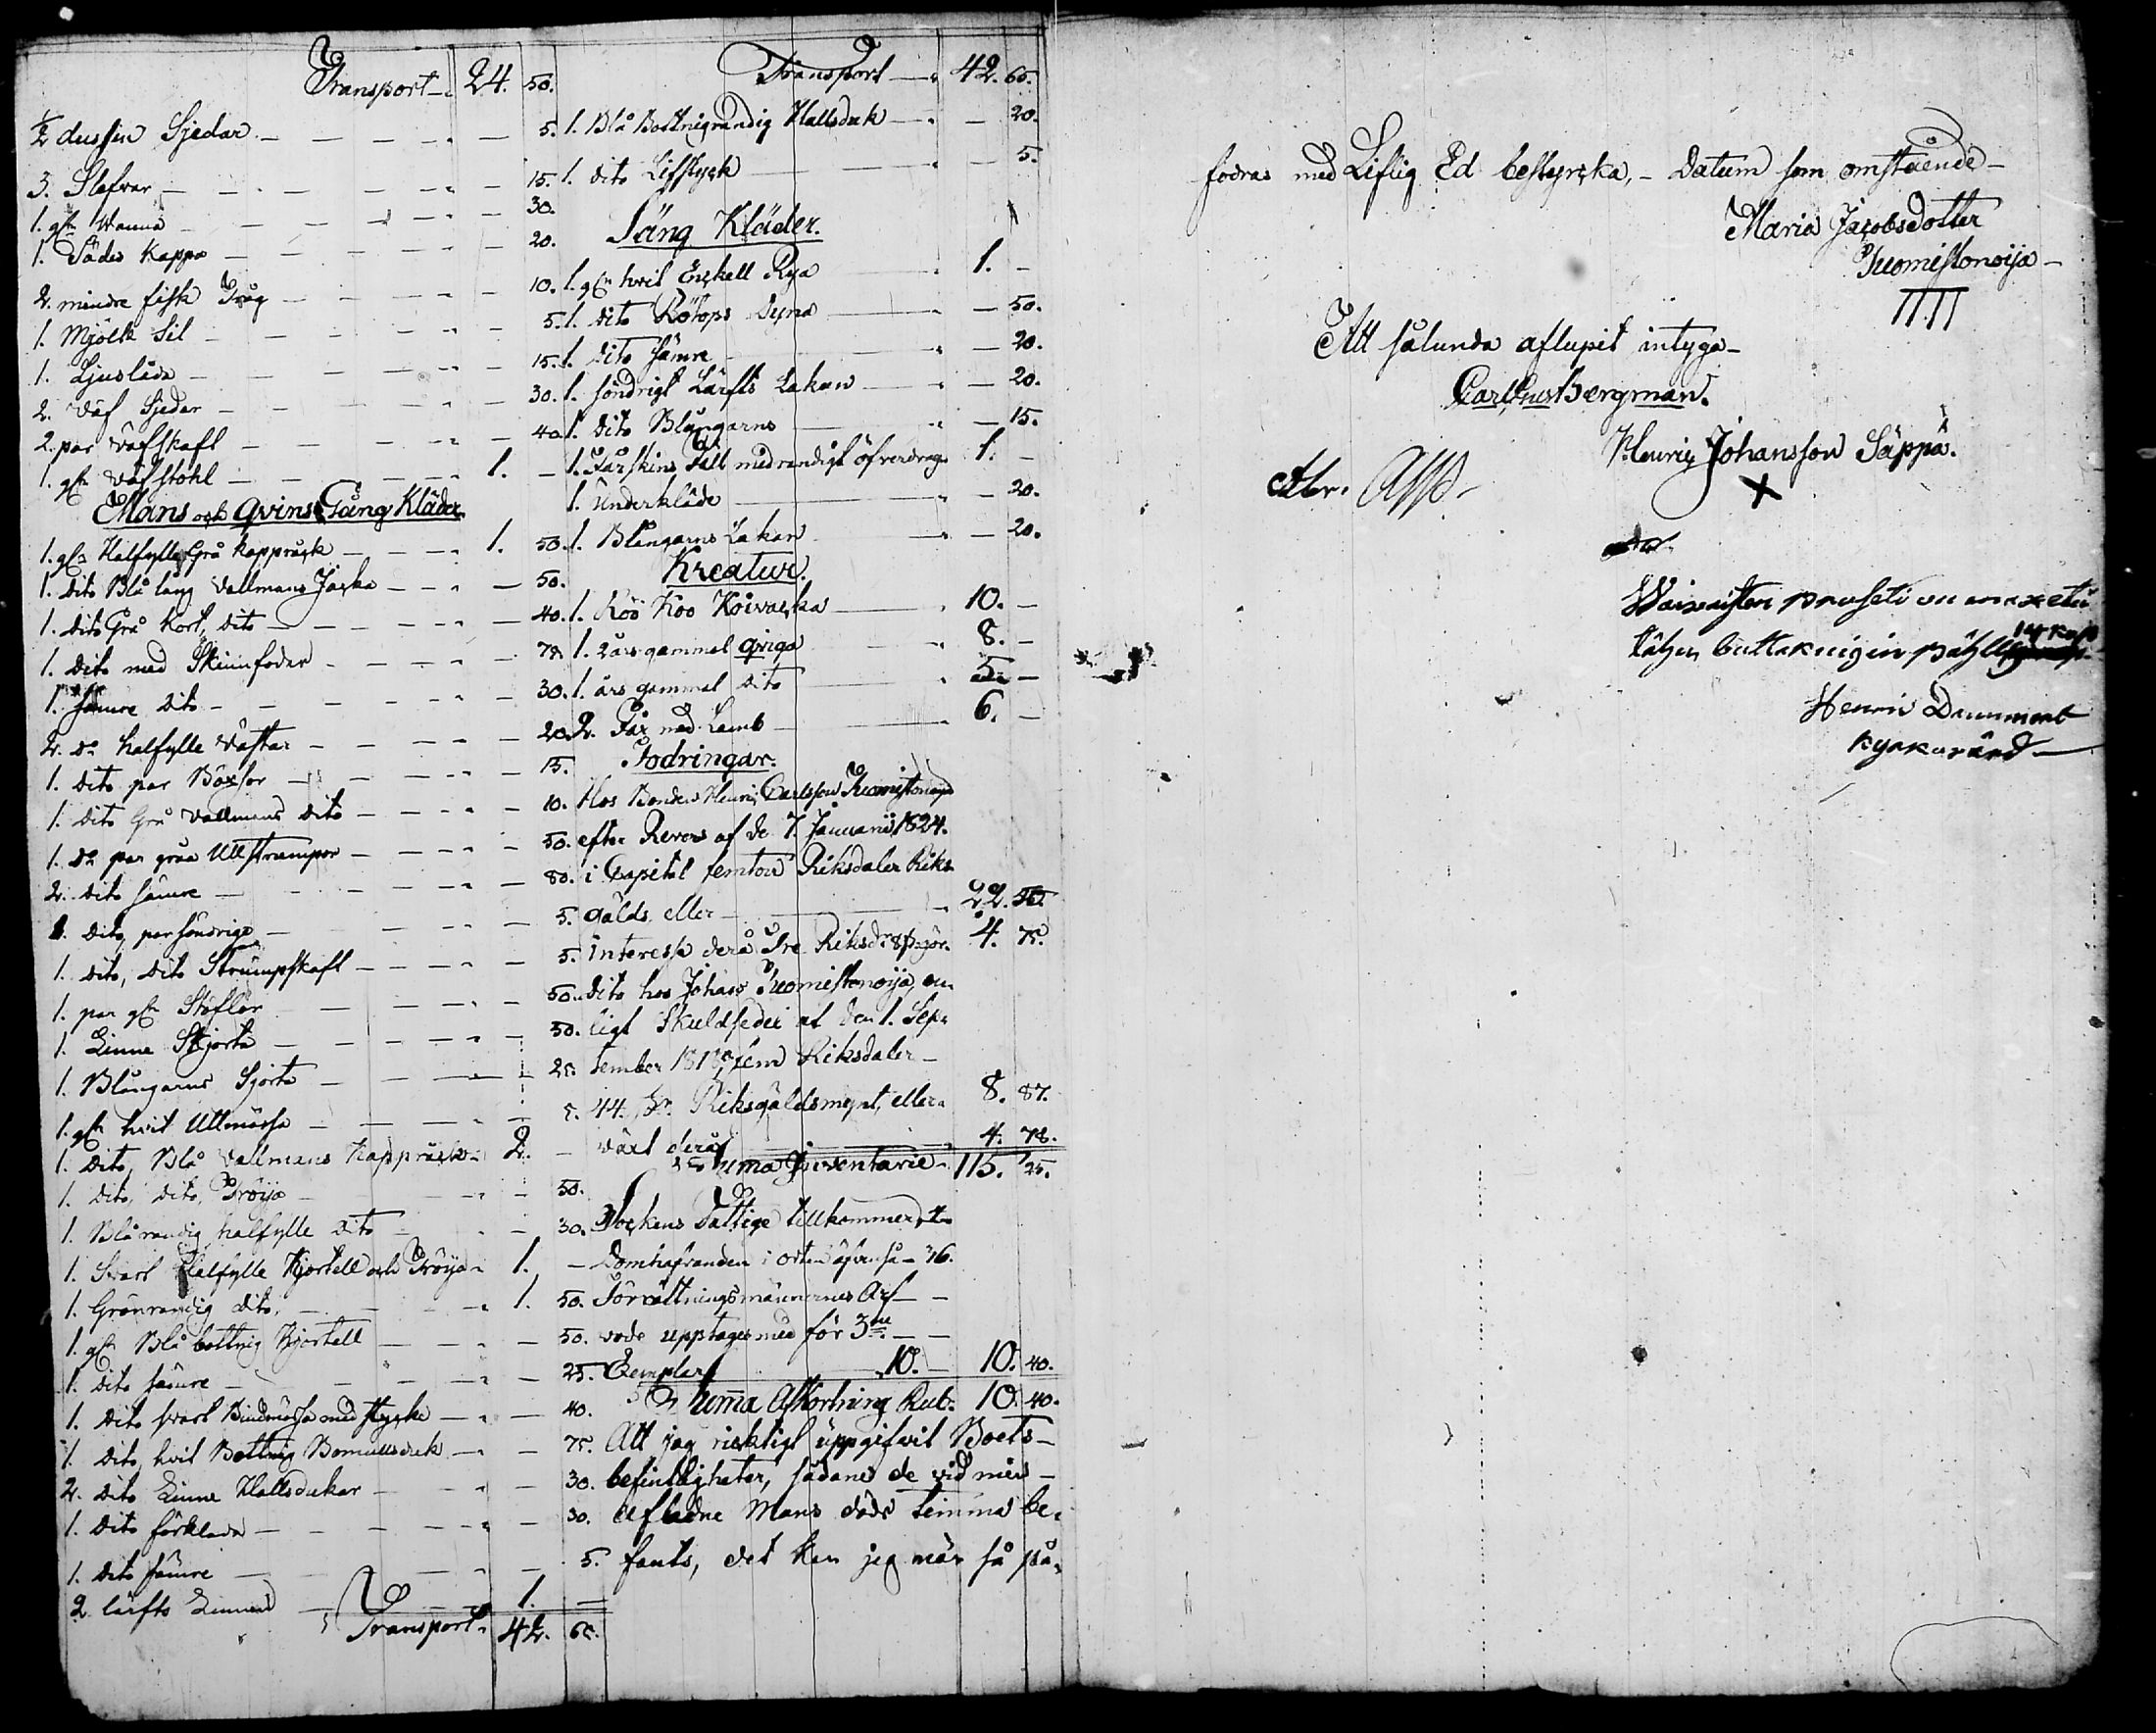 Transport 24. 50.
½ dussin Sjedar 5.
3. Slefvar 15.
1. gl. Wanna 30.
1. Sädes Kappa 20.
2. mindre fisk Tråg 10.
1. Mjölk Sil 5.
1. Ljuslåda 15.
2. Väf Sjedar 30.
2. par Väfskaft 40.
1. gl. Väfstohl 1. –
Mans och Qvins Gång Kläder
1. gl. Halfylle Grå Kappråck 1. 50.
1. Dito Blå lång Vallmans Jacka 50.
1. Dito Grå Kort, Dito 40.
1. Dito med Skinnfoder 75.
1. Sämre Dito 30.
2. Do halfylle Västar 20.
1. Dito par Böxor 15.
1. Dito Grå Vallmans Dito 10.
1. Do par gråa Ullstrumpor 50.
2. Dito sämre 80.
1. Dito par söndrige 5.
1. Dito, Dito Strumpskaft 5.
1. par gl. Stöflor 50.
1. Linne Skjorta 50.
1. Blångarns Sjorta 25.
1. gl. hvit Ullmössa 5.
1. Dito, Blå Vallmans Kappråck 2. –
1. Dito, Dito, Tröija 50.
1. Blårandig halfylle Dito 30.
1. Svart Halfylle Kjortell och Tröija 1. –
1. Grönrandig Dito 1. 50.
1. gl. Blå bottnig Kjortell 50.
1. Dito sämre 25.
1. Dito svart Bindmössa med stycke 40.
1. Dito, hvit Bottnig Bomullsduk 75.
2. Dito Linne Hallsdukar 30.
1. Dito förklade 30.
1. Dito sämre 5.
2 lärfts Linnen 1. –
Transport 42. 65.
Transport 42. 65.
1. Blå Bottnigrandig Hallsduk 20.
1. Dito Lifstyck 5.
Säng Kläder.
1. gl. hvit Enkell Rya 1. –
1. Dito Dyna 50.
1. Dito sämre 20.
1. söndrigt Lärfts Lakan 20.
1. Dito Blångarns 15.
1. Fårskins Fäll med randigt öfverdrag 1. –
1. Underkläde 20.
1. Blångarns Lakan 20.
Kreatur.
1. Röd Koo Koivacka 10. –
1. 2 års gammal qviga 8. –
1. års gammal Dito 5 –
2. Får med Lamb 6. –
Fodringar.
Hos Bonden Henric Carlsson Tuomistonoija
efter Revers af de 7. Januarii 1824.
i Capital femton Riksdaler Riks
gälds eller 22. 50.
interesse derå Tre Riksdr 8 s. gör. 4. 75.
dito hos Johans Tuomistonoija, en
ligt Skuldsedel af den 1. Sep
tember fem Riksdaler
44. s. Riksgäldsmynt, eller 8. 87.
växt derå 4. 78.
Summa Inventarie 115. 25.
Sockens Fattige tillkommer
Domhafvanden i orten äfvenså 16.
Förrättningsmännernes Arf
vode upptages med för 3ne
Exemplar 10. – 10. 40.
Summa Afkortning Rub. 10. 40.
Att jag ricktigt uppgifvit Boets
befintligheter, sådane de vid min
aflidne Mans döds timma be
fants, det kan jeg när så på
fodras med Liflig Ed bestyrcka, – Datum som omstående –
Maria Jacobsdotter
Tuomistonoija –
Att sålunda aflupit intyga –
Carl Gust Bergman.
Henric Johansson Säppä.
X
14 kop
Henric
kyrkovärd